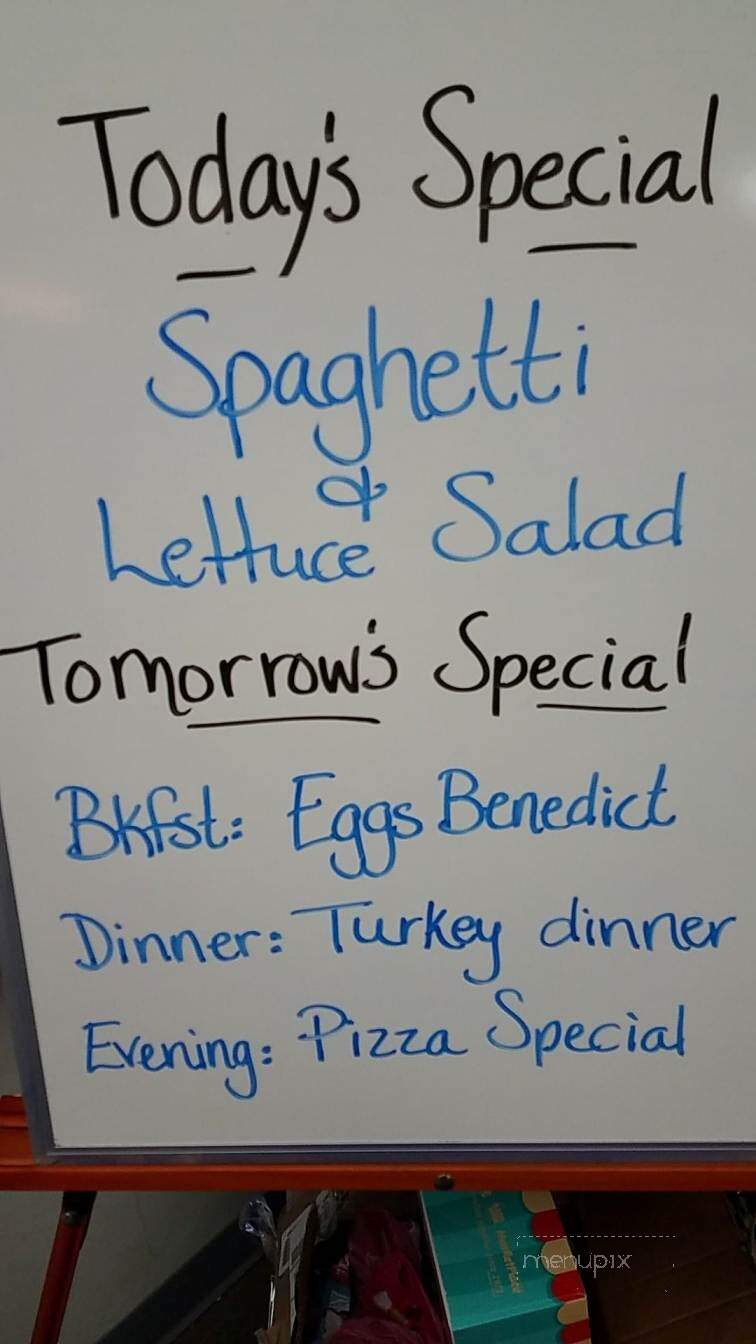 Today's Special
Spaghetti
&
Lettuce Salad
Tomorrow's Special
Bkfst: Eggs Benedict
Dinner: Turkey dinner
Evening: Pizza Special
menupix